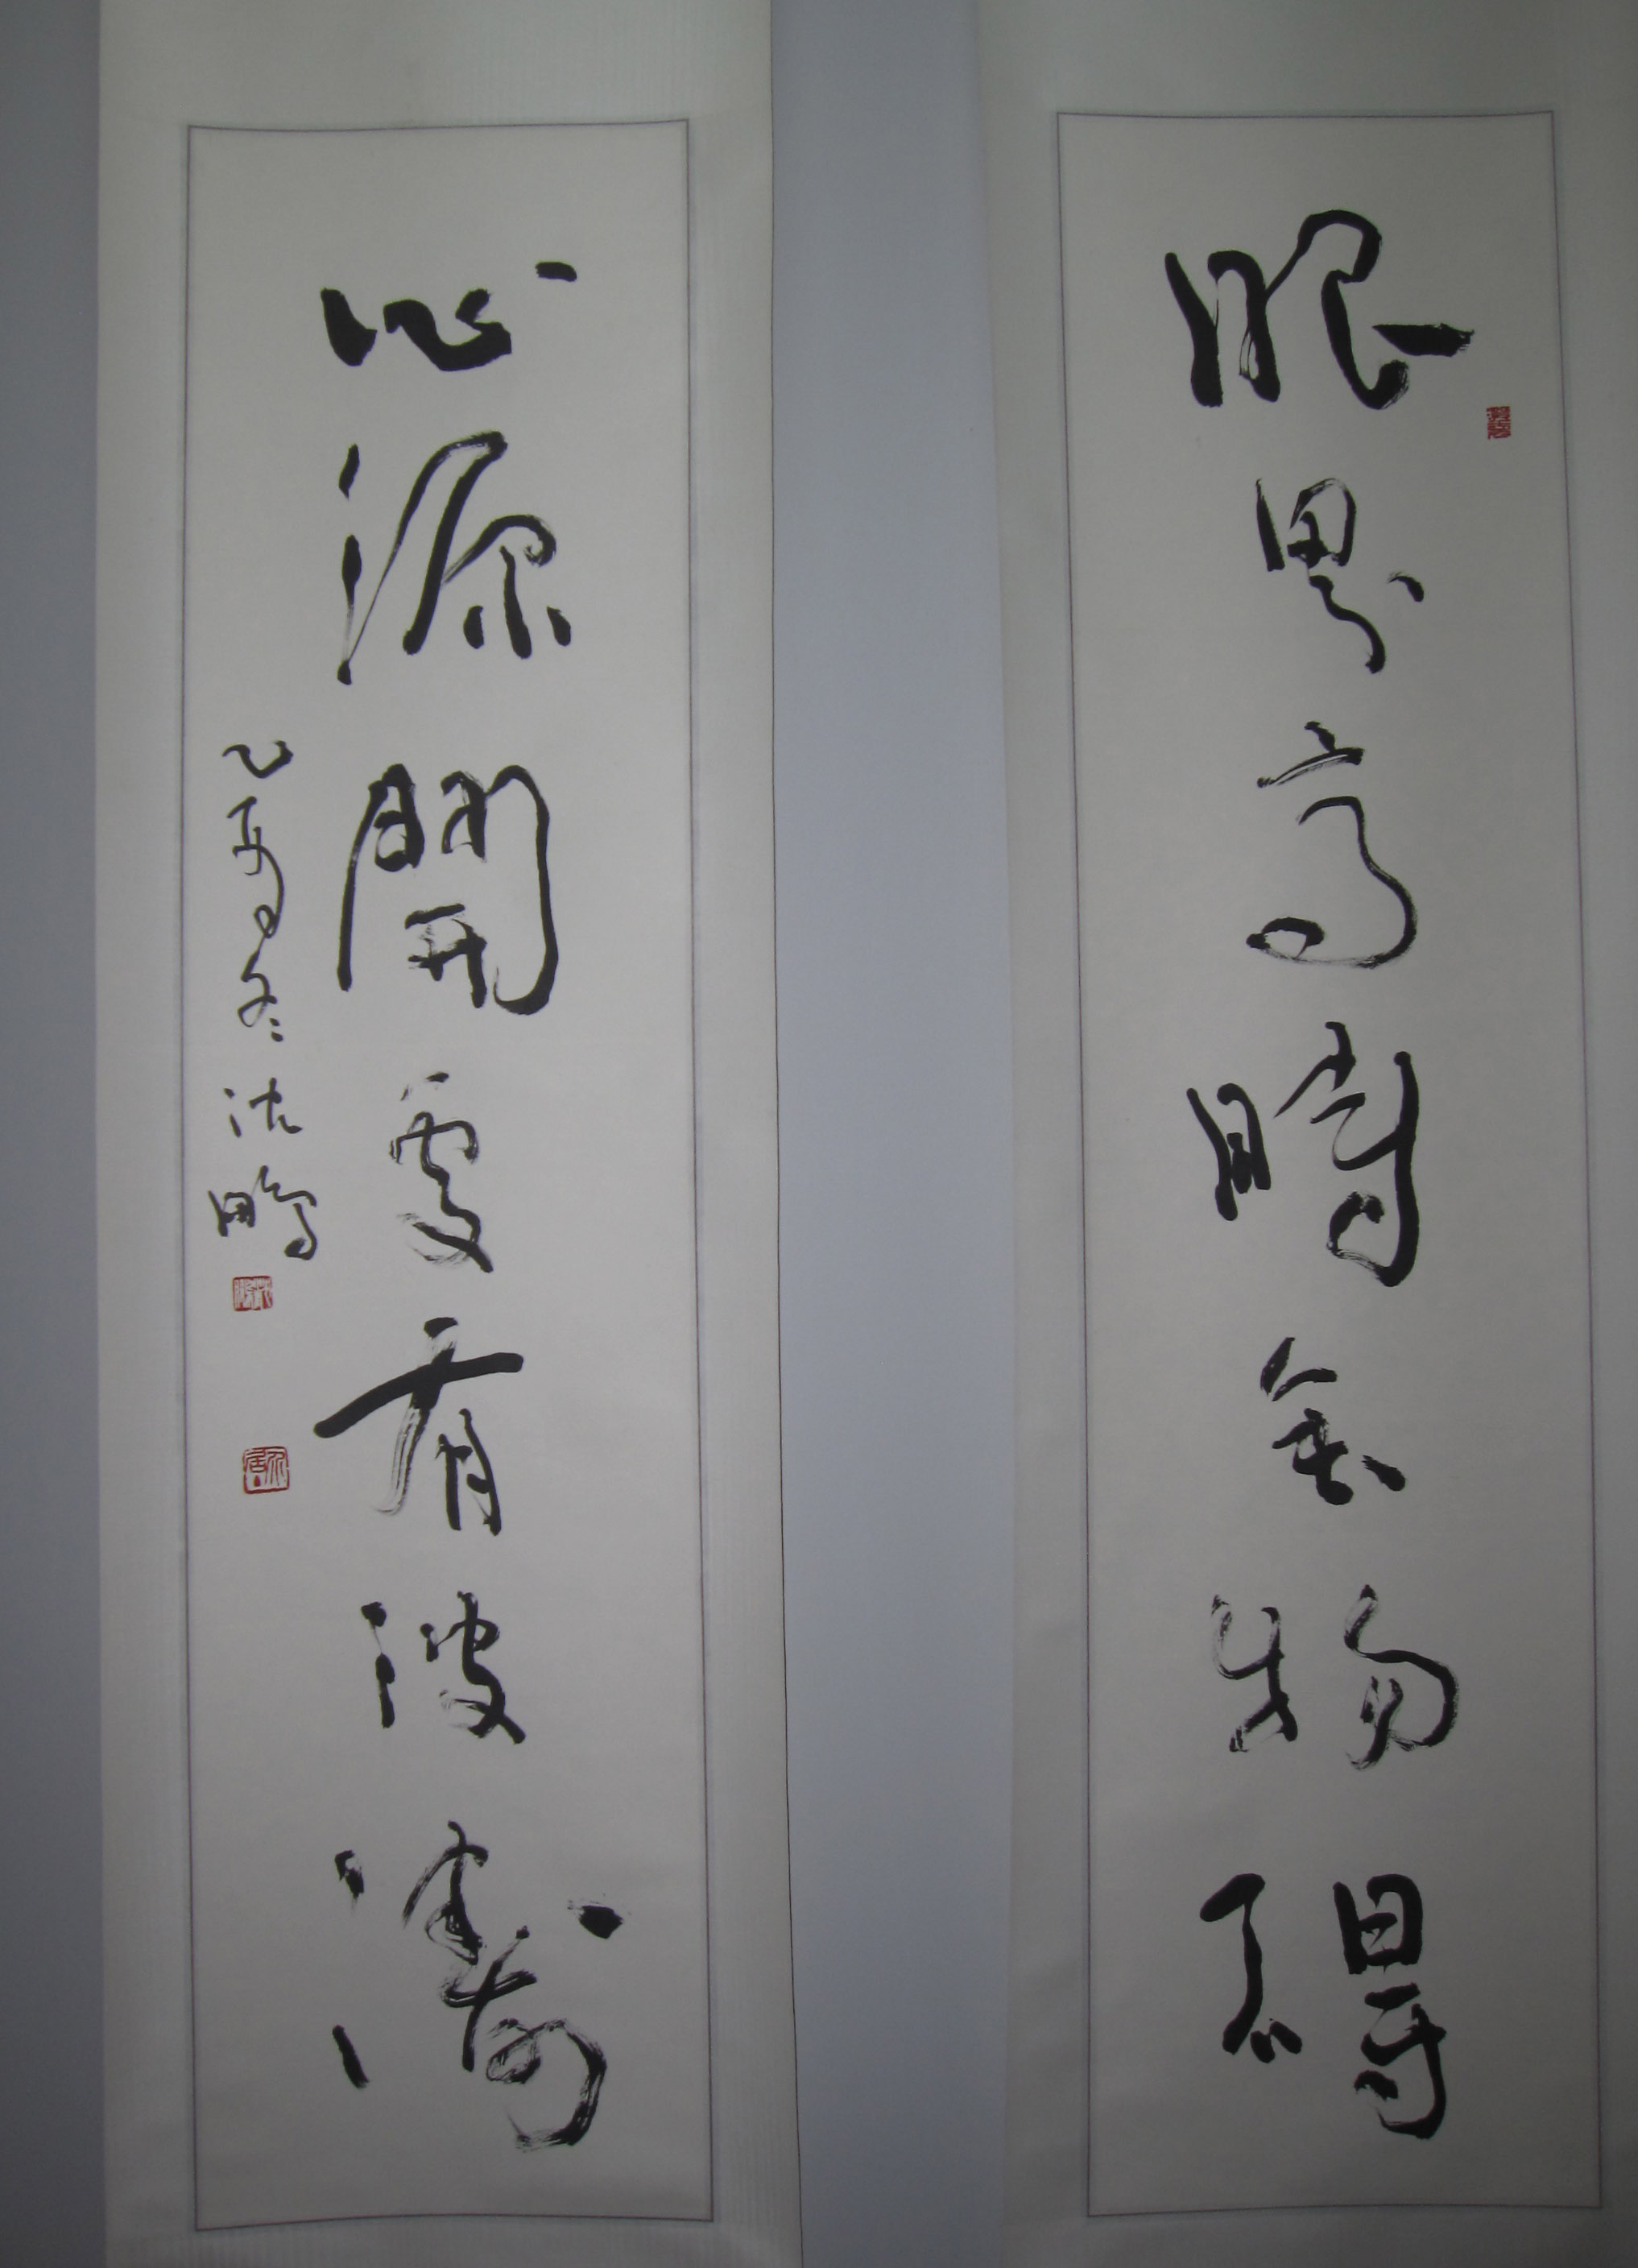 眼界高時無物碍
心源開處有波濤
乙酉冬 沈鵬